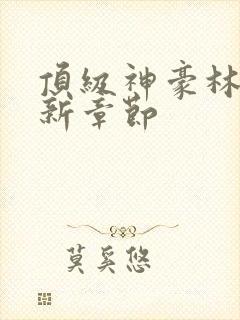 頂級神豪林
新章節
莫奚悠